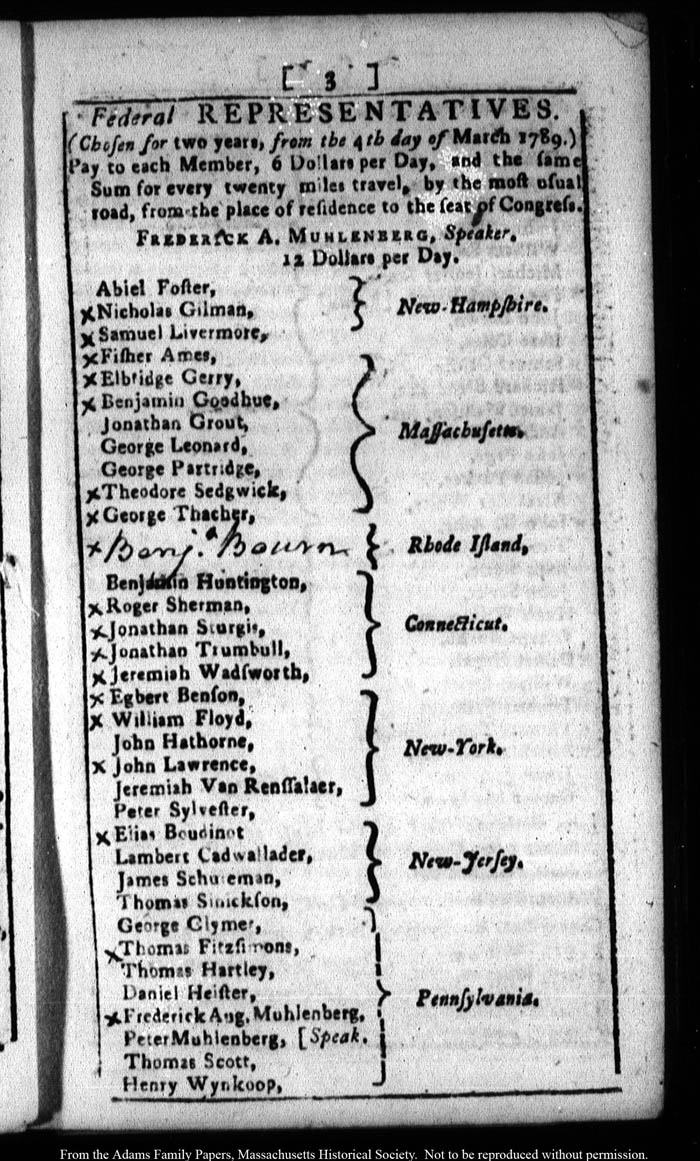 [ 3 ]
Federal REPRESENTATIVES.
(Choſen for two years, from the 4th day of March 1789.)
Pay to each Member, 6 Dollars per Day, and the ſame
Sum for every twenty miles travel, by the moſt uſual
road, from the place of reſidence to the ſeat of Congreſs.
FREDERICK A. MUHLENBERG, Speaker.
12 Dollars per Day.
Abiel Foſter,
x Nicholas Gilman, New-Hampſhire.
x Samuel Livermore,
x Fiſher Ames,
x Elbridge Gerry,
x Benjamin Goodhue,
Jonathan Grout, Maſſachuſetts.
George Leonard,
George Partridge,
x Theodore Sedgwick,
x George Thacher,
x Benj.a Bourn Rhode Iſland,
Benjamin Huntington,
x Roger Sherman,
x Jonathan Sturgis, Connecticut.
x Jonathan Trumbull,
x Jeremiah Wadſworth,
x Egbert Benſon,
x William Floyd,
John Hathorne, New-York.
x John Lawrence,
Jeremiah Van Renſſalaer,
Peter Sylveſter,
x Elias Boudinot
Lambert Cadwallader, New-Jerſey.
James Schureman,
Thomas Sinickſon,
George Clymer,
x Thomas Fitzſimons,
Thomas Hartley,
Daniel Heiſter, Pennſylvania.
x Frederick Aug. Muhlenberg,
Peter Muhlenberg, [Speak.
Thomas Scott,
Henry Wynkoop,
From the Adams Family Papers, Massachusetts Historical Society. Not to be reproduced without permission.